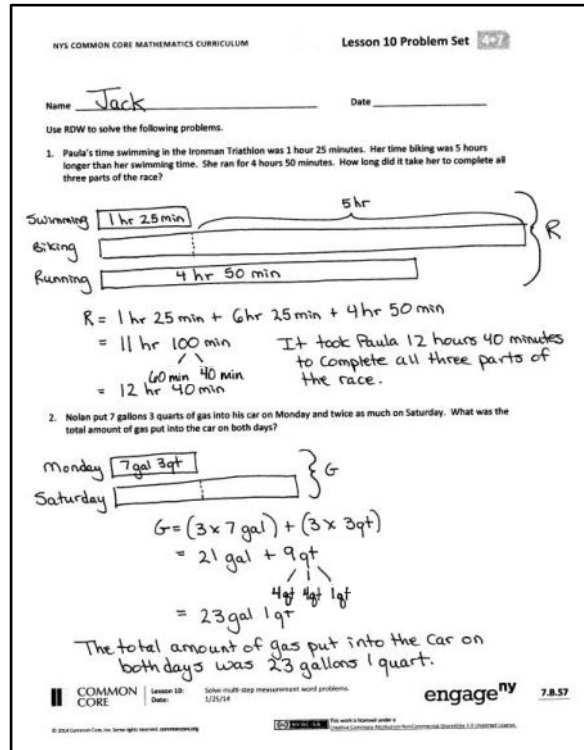 NYS COMMON CORE MATHEMATICS CURRICULUM Lesson 10 Problem Set 4•7
Name Jack Date
Use RDW to solve the following problems.
1. Paula's time swimming in the Ironman Triathlon was 1 hour 25 minutes. Her time biking was 5 hours
longer than her swimming time. She ran for 4 hours 50 minutes. How long did it take her to complete all
three parts of the race?
5 hr
Swimming 1 hr 25 min
Biking
R
Running 4 hr 50 min
R = 1 hr 25 min + 6hr 25 min + 4 hr 50 min
= 11 hr 100 min
60 min 40 min
= 12 hr 40 min
It took Paula 12 hours 40 minutes
to complete all three parts of
the race.
2. Nolan put 7 gallons 3 quarts of gas into his car on Monday and twice as much on Saturday. What was the
total amount of gas put into the car on both days?
Monday 7 gal 3qt
G
Saturday
G = (3 x 7 gal) + (3 x 3qt)
= 21 gal + 9qt
4qt 4qt 1qt
= 23 gal 1 qt
The total amount of gas put into the car on
both days was 23 gallons 1 quart.
COMMON CORE
Lesson 10: Solve multi-step measurement word problems.
Date: 1/25/14
engageny
7.B.57
© 2014 Common Core, Inc. Some rights reserved. commoncore.org
This work is licensed under a
Creative Commons Attribution-NonCommercial-ShareAlike 3.0 Unported License.